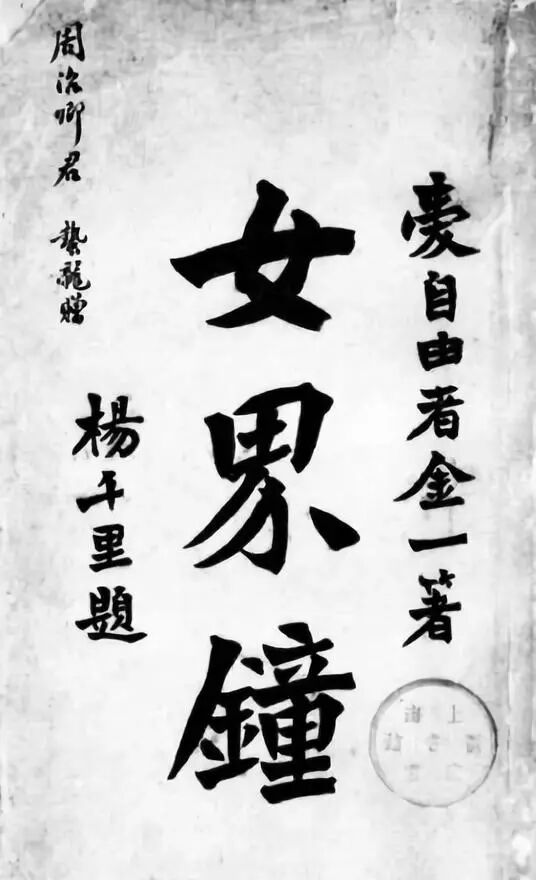 愛自由者金一著
女界鐘
楊千里題
周治卿君 蟄龍贈